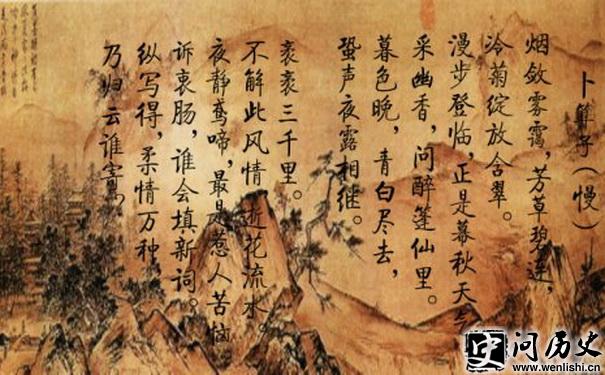 卜算子(慢)
烟敛雾霭,芳草碧连,
冷菊绽放含翠。
漫步登临,正是暮秋天气
采幽香,问醉篷仙里。
暮色晚,青白尽去,
蛩声夜露相继。
衮衮三千里。
不解此风情,逝花流水。
夜静鸯啼,最是惹人苦恼
诉衷肠,谁会填新词。
纵写得,柔情万种
乃归云谁寄?
问历史
www.wenlishi.cn